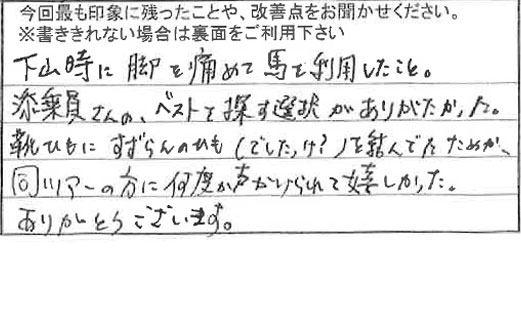 今回最も印象に残ったことや、改善点をお聞かせください。
※書ききれない場合は裏面をご利用下さい
下山時に脚を痛めて馬を利用したこと。
添乗員さんの、ベストを探す選択がありがたかった。
靴ひもにすずらんのひも(でしたっけ?)を結んでたためか、
同ツアーの方に何度か声かけられて嬉しかった。
ありがとうございます。